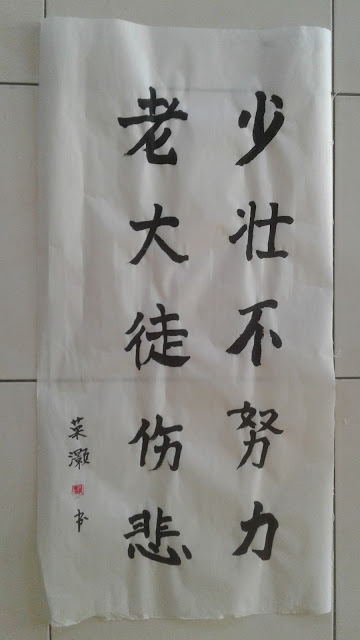 少壮不努力
老大徒伤悲
菜灏 书